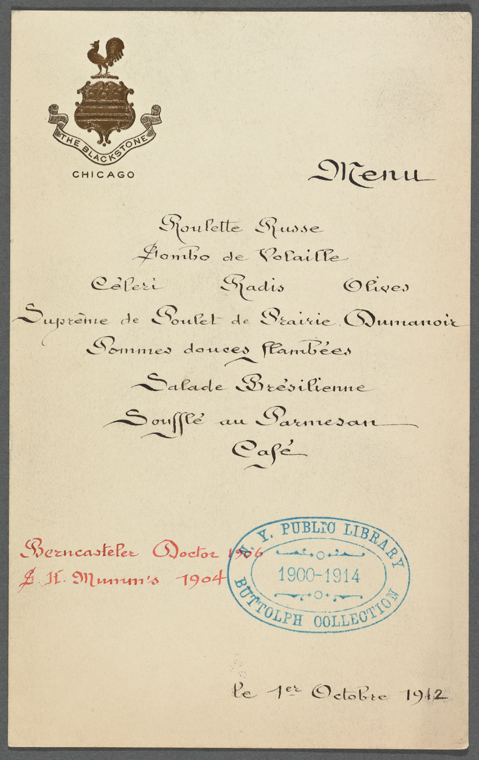 THE BLACKSTONE
CHICAGO
Menu
Roulette Russe
Gombo de Volaille
Céleri Radis Olives
Suprême de Poulet de Prairie Dumanoir
Pommes douces flambées
Salade Brésilienne
Soufflé au Parmesan
Café
Berncasteler Doctor 1906
G. H. Mumm's 1904
N. Y. PUBLIC LIBRARY
1900-1914
BUTTOLPH COLLECTION
le 1er Octobre 1912